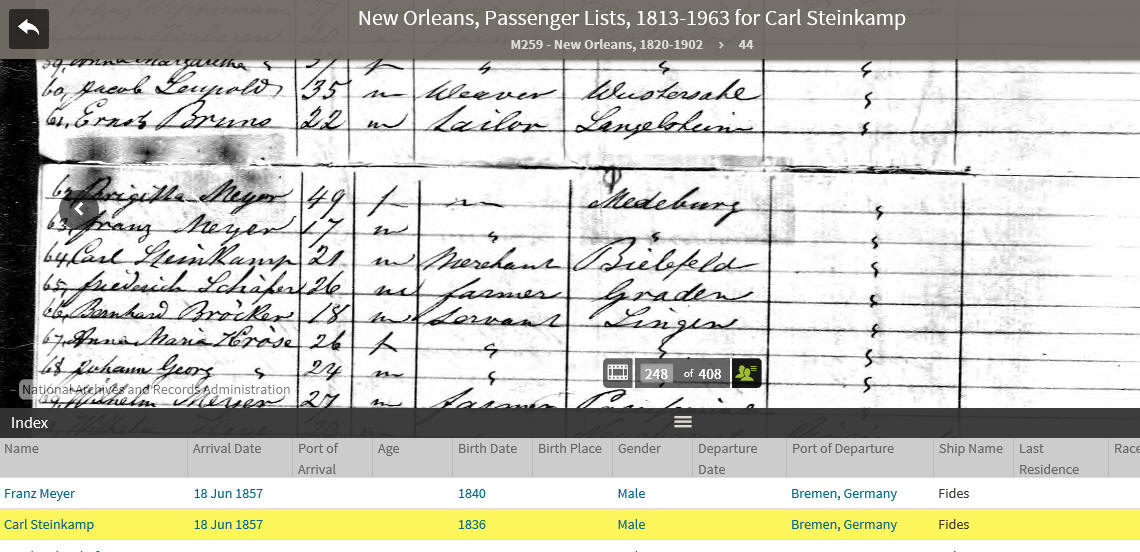 New Orleans, Passenger Lists, 1813-1963 for Carl Steinkamp
M259 - New Orleans, 1820-1902 › 44
59, Anna Margaretha " 57 f " " "
60, Jacob Leupold 35 m Weaver "
61, Ernst Bruns 22 m tailor Langelsheim "
62, Brigitta Meyer 49 f — Medeburg "
63, Franz Meyer 17 m " " "
64, Carl Steinkamp 21 m Merchant Bielefeld "
65, Friederich Schäfer 26 m farmer Graden "
66, Bernhard Bröcker 18 m Servant Lingen "
67, Anna Maria Kröse 26 f " " "
68 Johann Georg " 24 m " "
248 of 408
National Archives and Records Administration
Wilhelm Meyer 27 m farmer
Index
Name Arrival Date Port of Arrival Age Birth Date Birth Place Gender Departure Date Port of Departure Ship Name Last Residence Race
Franz Meyer 18 Jun 1857 1840 Male Bremen, Germany Fides
Carl Steinkamp 18 Jun 1857 1836 Male Bremen, Germany Fides